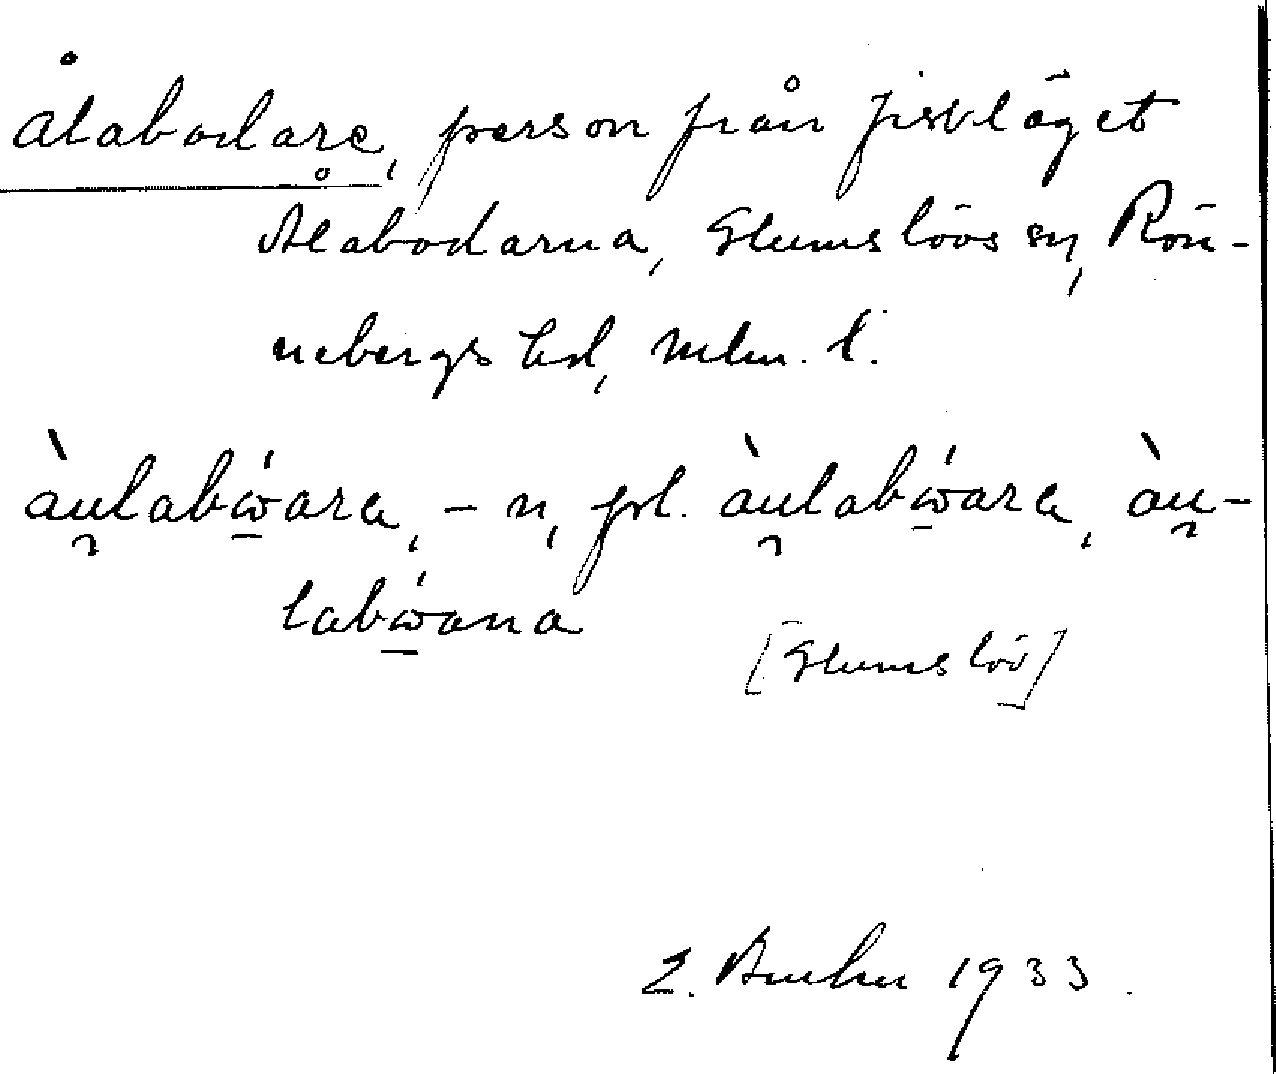 ålabodare, person från fiskläget
Ålabodarna, Glumslövs sn, Rön-
nebergs hd, Mlm. l.
àu̯labẃ̱ara, -n, pl. àu̯labẃ̱ara, àu̯-
labẃ̱ana
[Glumslöv]
1933.